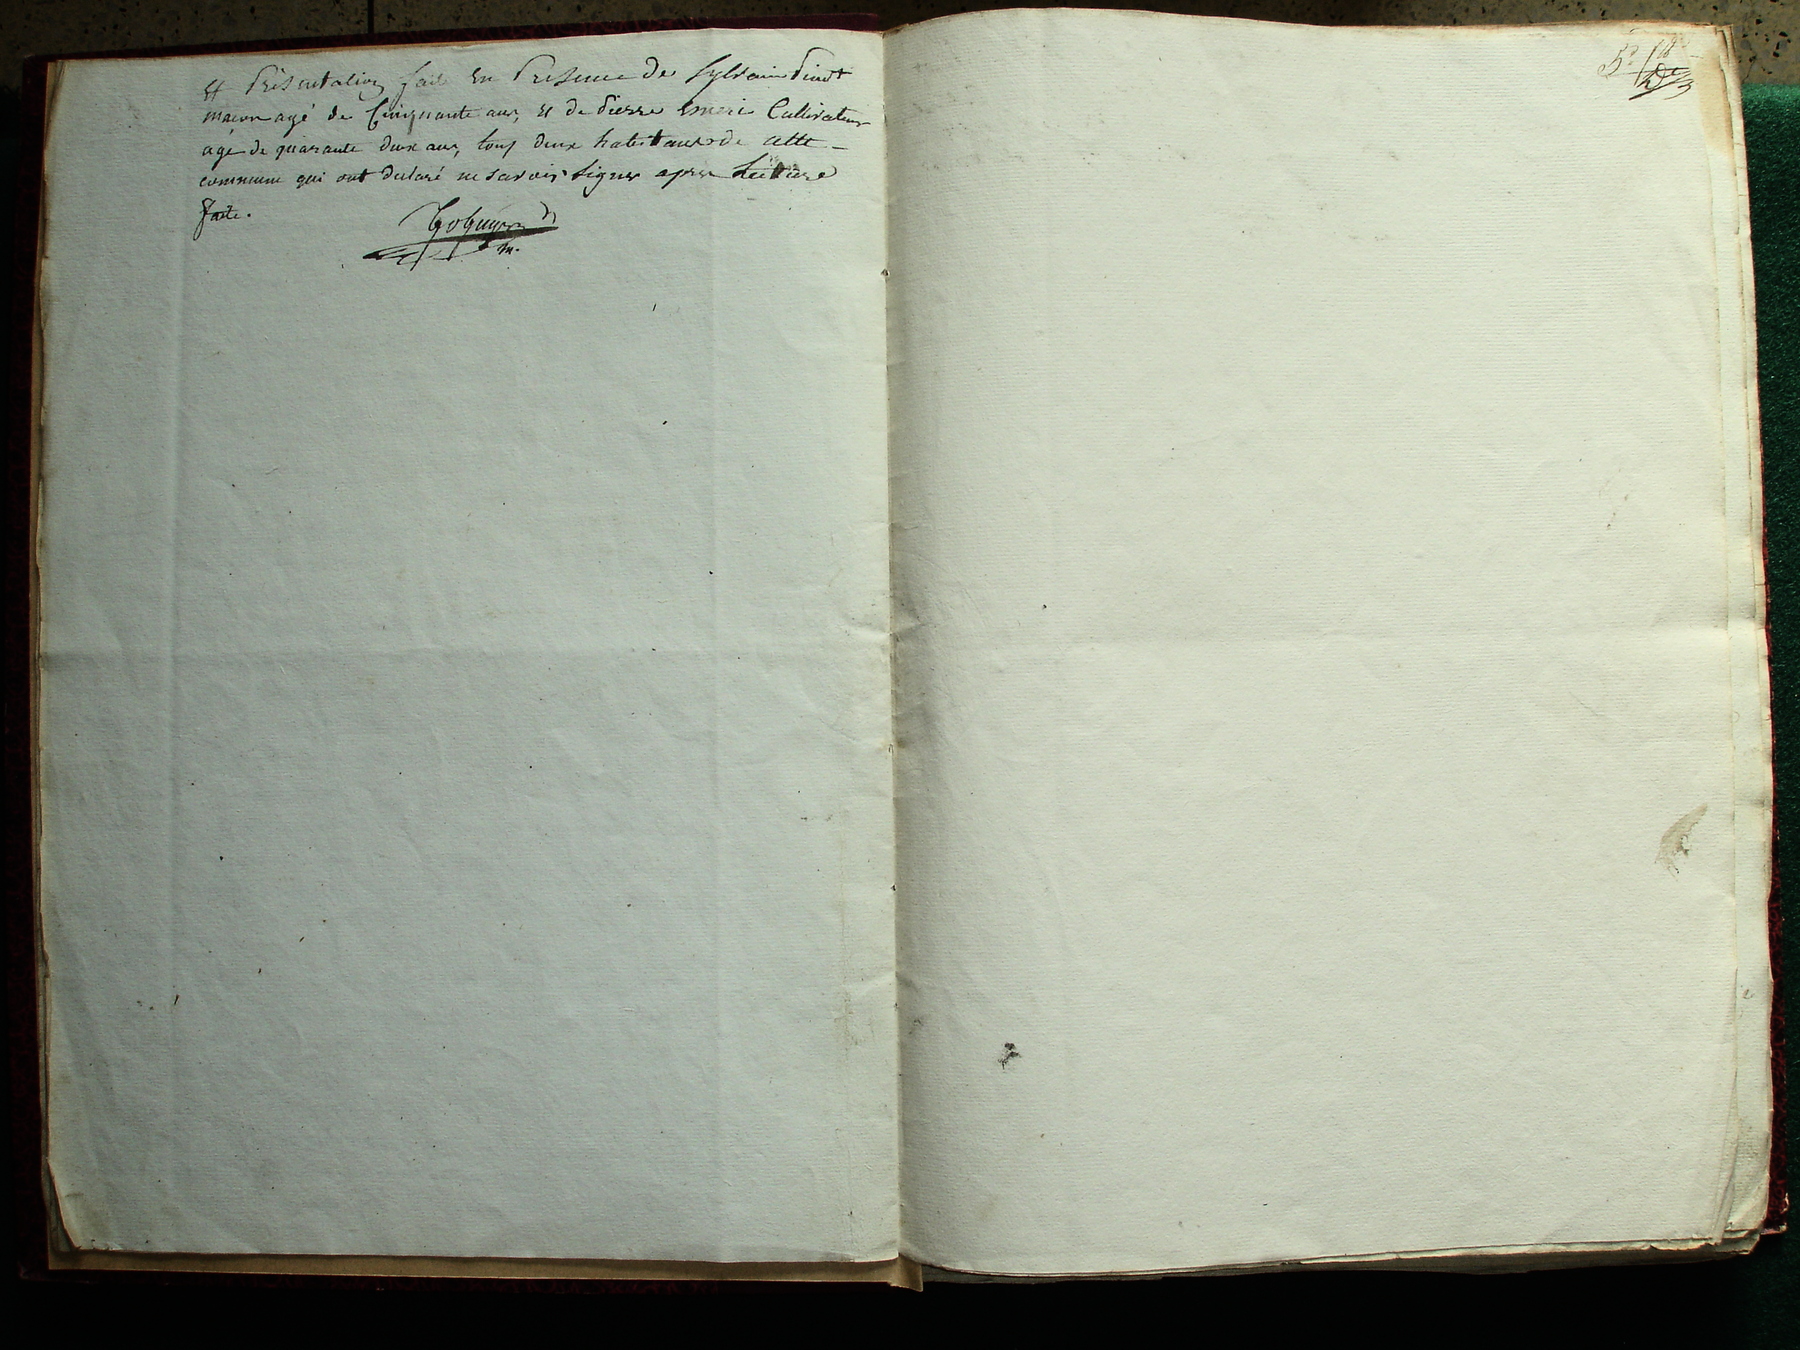 et Présentation fait en Présence de Sylvain Pinot
macon agé de Cinquante ans, et de Pierre Emeri Cultivateur
agé de quarante deux ans, tous deux habitans de cette
commune qui ont déclaré ne savoir signer apres Lecture
faite.